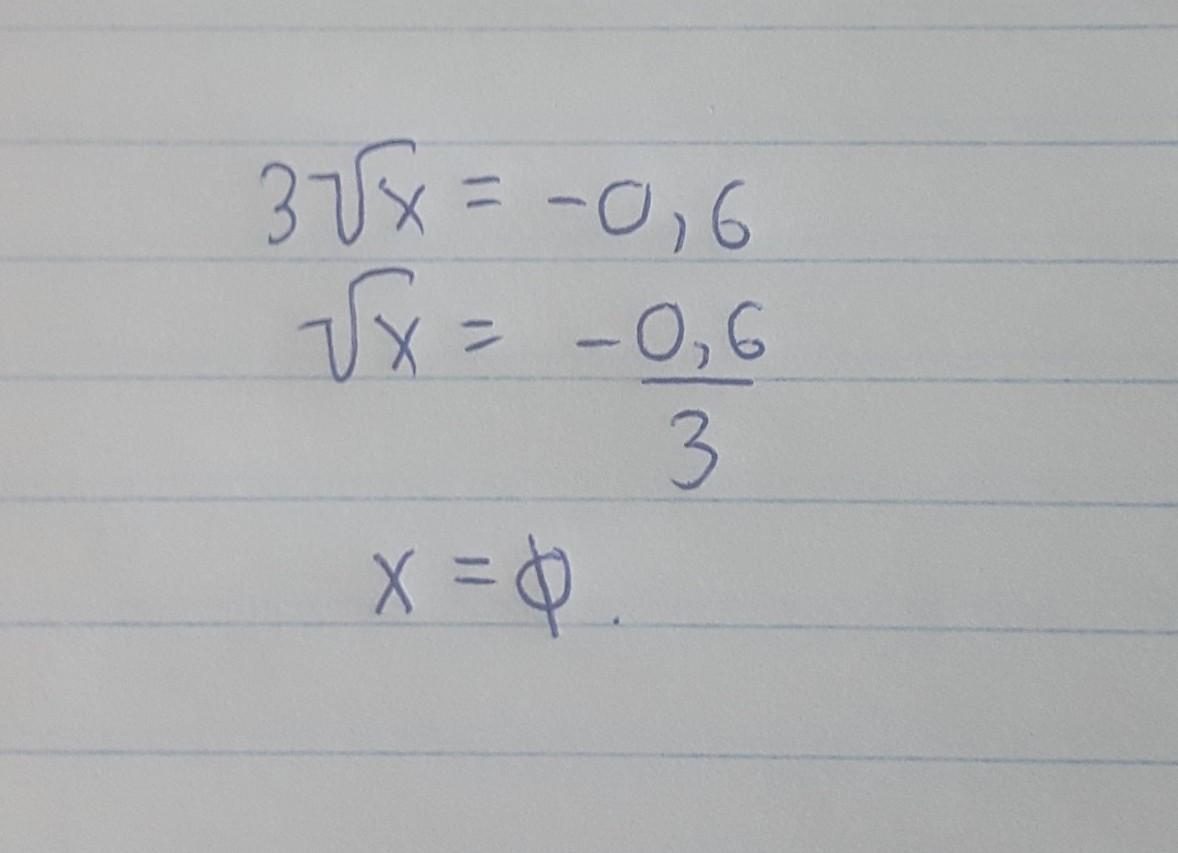 3√x = -0,6
√x = -0,6/3
x = ϕ.